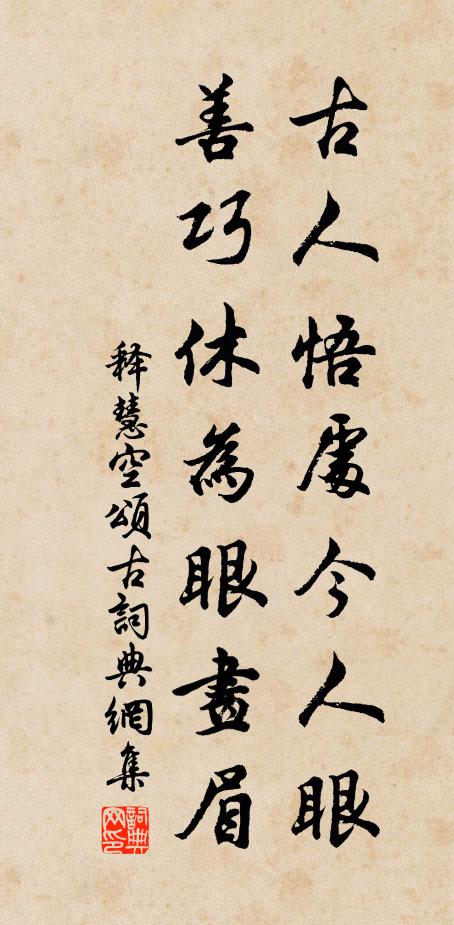 古人悟處今人眼
善巧休為眼畫眉
释慧空頌古詞典網集
詞典网印